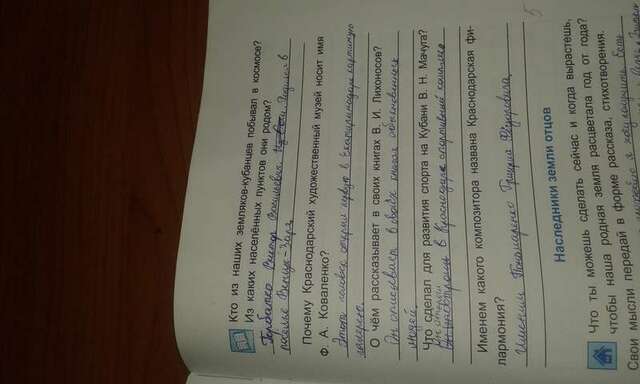 Кто из наших земляков-кубанцев побывал в космосе?
Из каких населённых пунктов они родом?
Горбатко Виктор Васильевич. Родился в
посёлке Венцы-Заря
Почему Краснодарский художественный музей носит имя
Ф. А. Коваленко?
Этот человек открыл первую в Екатеринодаре картинную
галерею.
О чём рассказывает в своих книгах В. И. Лихоносов?
Он описывает в своих книгах обыкновенных
людей.
Что сделал для развития спорта на Кубани В. Н. Мачуга?
Он открыл в Краснодаре спортивный комплекс
Именем какого композитора названа Краснодарская фи-
лармония?
Именем Пономаренко Григория Фёдоровича
5
Наследники земли отцов
Что ты можешь сделать сейчас и когда вырастешь,
чтобы наша родная земля расцветала год от года?
Свои мысли передай в форме рассказа, стихотворения.